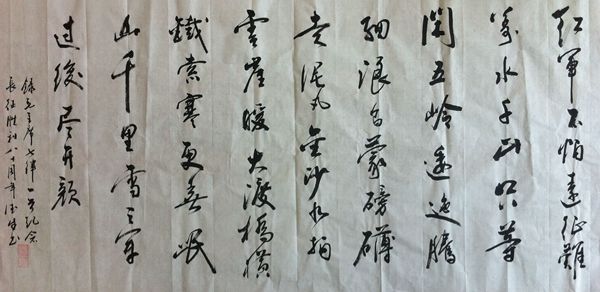 红軍不怕遠征難
萬水千山只等
闲五岭逶迤腾
细浪乌蒙磅礴
走泥丸金沙水拍
雲崖暖大渡橋横
鐵索寒更喜岷
山千里雪三军
过後尽开颜
録毛主席七律一首纪念
长征胜利八十周年